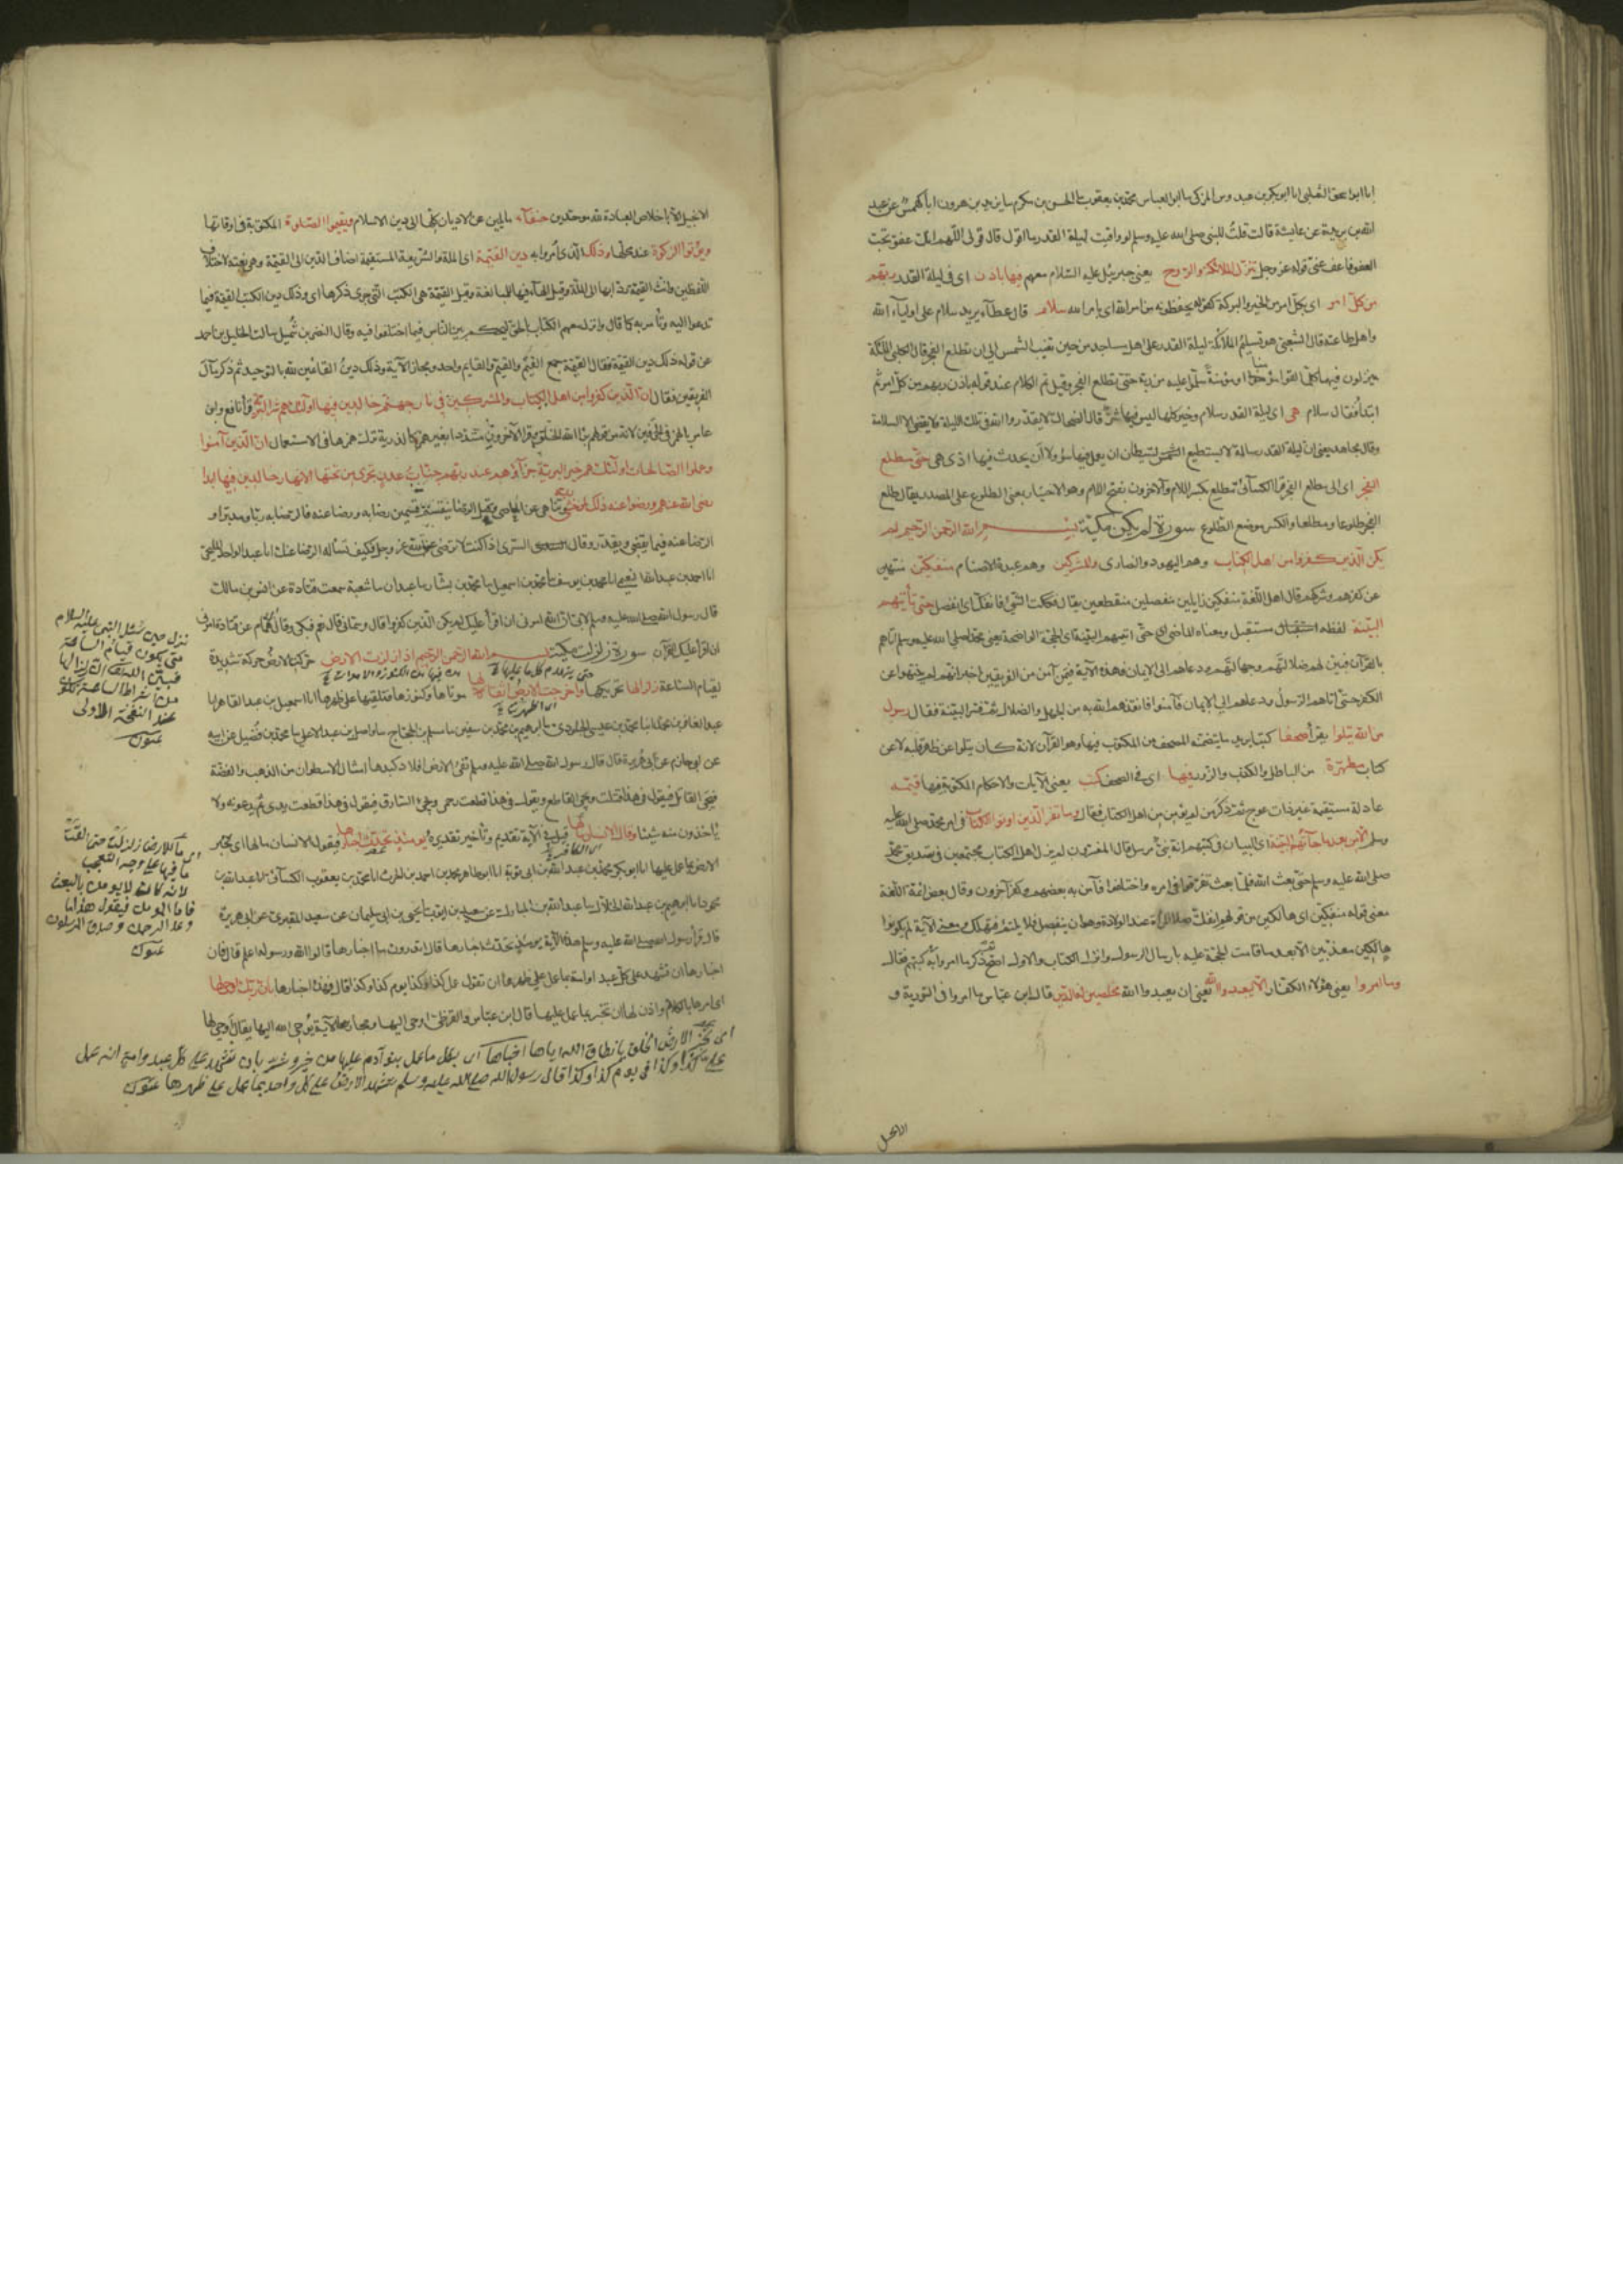 انا ابو اسحق الثعلبي انا ابو بكر بن عبدوس المزكي نا ابو العباس محمد بن يعقوب نا الحسن بن مكرم نا يزيد بن هرون انا كهمس عن عبد
الله بن بريدة عن عايشة قالت قلت للنبي صلى الله عليه وسلم لو وافيت ليلة القدر ما اقول قال قولي اللهم انك عفو تحب
العفو فاعف عني قوله عز وجل تنزل الملائكة والروح يعني جبريل عليه السلام معهم فيها باذن اى في ليلة القدر ربهم
من كل امر اى بكل امر من الخير والبركة كقوله يحفظونه من امر الله اى بامر الله سلام قال عطآء يريد سلام على اولياء الله
واهل طاعته قال الشعبي هو تسليم الملائكة ليلة القدر على اهل المساجد من حين تغيب الشمس الى ان تطلع الفجر قال الكلبي الملئكة
ينزلون فيها كلما لقوا مؤمنا او مؤمنة سلموا عليه من ربه حتى تطلع الفجر وقيل تم الكلام عند قوله باذن ربهم من كل امر ثم
ابتدأ فقال سلام هي اى ليلة القدر سلام وخير كلها ليس فيها شر قال الضحاك لا يقدر الله في تلك الليلة ولا يقضي الا السلامة
وقال مجاهد يعني ان ليلة القدر سالمة لا يستطيع الشيطان ان يعمل فيها سوء ولا ان يحدث فيها اذى هي حتى مطلع
الفجر اى الى مطلع الفجر قرا الكسآئى مطلع بكسر اللام والآخرون بفتح اللام وهو الاختيار بمعنى الطلوع على المصدر يقال طلع
الفجر طلوعا ومطلعا والكسر موضع الطلوع سورة لم يكن مكية بسم الله الرحمن الرحيم لم
يكن الذين كفروا من اهل الكتاب وهم اليهود والنصارى والمشركين وهم عبدة الاصنام منفكين منتهين
عن كفرهم وشركهم قال اهل اللغة منفكين زايلين منفصلين منقطعين يقال فككت الشئ فانفك اى انفصل حتى تأتيهم
البينة لفظه استقبال مستقبل ومعناه الماضي اى حتى اتتهم البينة اى الحجة الواضحة يعني محمدا صلى الله عليه وسلم اتاهم
بالقرآن فبين لهم ضلالتهم وجهالتهم ودعاهم الى الايمان فهذه الآية فيمن آمن من الفريقين اخبر انهم لم ينتهوا عن
الكفر حتى اتاهم الرسول ودعاهم الى الايمان فآمنوا فانقذهم الله به من الجهل والضلال ثم فسر البينة فقال رسول
من الله يتلوا يقرأ صحفا كتبا يريد ما يتضمنه المصحف من المكتوب فيها وهو القرآن لانه كان يتلوا عن ظهر قلبه لا عن
كتاب مطهرة من الباطل والكذب والزور فيها اى في الصحف كتب يعني الآيات والاحكام المكتوبة فيها قيمة
عادلة مستقيمة غير ذات عوج ثم ذكر من لم يؤمن من اهل الكتاب فقال وما تفرق الذين اوتوا الكتاب في امر محمد صلى الله عليه
وسلم الا من بعد ما جآءتهم البينة اى البيان في كتبهم انه نبي مرسل قال المفسرون لم يزل اهل الكتاب مجتمعين في تصديق محمد
صلى الله عليه وسلم حتى بعث الله فلما بعث تفرقوا في امره واختلفوا فآمن به بعضهم وكفر آخرون وقال بعض ائمة اللغة
معنى قوله منفكين اى هالكين من قولهم انفك صلا المرأة عند الولادة وهو ان ينفصل فلا يلتئم فتهلك ومعنى الآية لم يكونوا
هالكين معذبين الا بعد ما قامت الحجة عليهم بارسال الرسول وانزال الكتاب والاول اصح ثم ذكر ما امروا به في كتبهم فقال
وما امروا يعني هؤلاء الكفار الا ليعبدوا الله يعني ان يعبدوا الله مخلصين له الدين قال ابن عباس ما امروا في التورية و
الانجيل
الانجيل الا باخلاص العبادة لله موحدين حنفآء مايلين عن الاديان كلها الى دين الاسلام ويقيموا الصلوة المكتوبة في اوقاتها
ويؤتوا الزكوة عند محلها وذلك الذي امروا به دين القيمة اى الملة والشريعة المستقيمة اضاف الدين الى القيمة وهي نعته لاختلاف
اللفظين وانث القيمة ردا بها الى الملة وقيل الهآء فيها للمبالغة وقيل القيمة هي الكتب التي جرى ذكرها اى وذلك دين الكتب القيمة فيما
تدعوا اليه وتأمر به كما قال وانزل معهم الكتاب بالحق ليحكم بين الناس فيما اختلفوا فيه وقال النضر بن شميل سالت الخليل بن احمد
عن قوله وذلك دين القيمة فقال القيمة جمع القيم والقيم والقايم واحد ومجاز الآية وذلك دين القائمين لله بالتوحيد ثم ذكر ما لل
الفريقين فقال ان الذين كفروا من اهل الكتاب والمشركين في نار جهنم خالدين فيها اولئك هم شر البرية قرأ نافع وابن
عامر بالهمز في الحرفين لانه من قولهم برأ الله الخلق وقرا الآخرون مشددا بغير همز كالذرية ترك همزها في الاستعمال ان الذين آمنوا
وعملوا الصالحات اولئك هم خير البرية جزآؤهم عند ربهم جنات عدن تجرى من تحتها الانهار خالدين فيها ابدا
رضى الله عنهم ورضوا عنه ذلك لمن خشي ربه وتناهى عن المعاصي وقيل الرضا ينقسم قسمين رضا به ورضا عنه فالرضا به ربا ومدبرا و
الرضا عنه فيما يقضي ويقدر وقال السدى السري اذا كنت لا ترضى عن الله عز وجل فكيف تسأله الرضا عنك انا عبد الواحد المليحي
انا احمد بن عبد الله النعيمي انا محمد بن يوسف نا محمد بن اسمعيل نا محمد بن بشار نا غندر نا شعبة سمعت قتادة عن انس بن مالك
قال رسول الله صلى الله عليه وسلم لابي ان الله امرني ان اقرأ عليك لم يكن الذين كفروا قال وسماني قال نعم فبكى وقال همام عن قتادة امرني
ان اقرأ عليك القرآن سورة زلزلت مكية بسم الله الرحمن الرحيم اذا زلزلت الارض حركت الارض حركة شديدة
لقيام الساعة زلزالها تحريكها واخرجت الارض اثقالها موتاها وكنوزها فتلقيها على ظهرها انا اسمعيل بن عبد القاهر انا
عبد الغافر بن محمد انا محمد بن عيسى الجلودي نا ابرهيم بن محمد بن سفين نا مسلم بن الحجاج نا واصل بن عبد الاعلى نا محمد بن فضيل عن ابيه
عن ابي حازم عن ابي هريرة قال قال رسول الله صلى الله عليه وسلم تقئ الارض افلاذ كبدها امثال الاسطوان من الذهب والفضة
فيجئ القاتل فيقول في هذا قتلت ويجئ القاطع ويقول في هذا قطعت رحمي ويجئ السارق فيقول في هذا قطعت يدي ثم يدعونه ولا
يأخذون منه شيئا وقال الانسان مالها قيل في الآية تقديم وتأخير تقديره يومئذ تحدث اخبارها فيقول الانسان مالها اى تخبر
الارض بما عمل عليها انا ابو بكر محمد بن عبد الله بن ابي توبة انا ابو طاهر محمد بن احمد بن الحرث انا محمد بن يعقوب الكسآئى انا عبد الله بن
محمود انا ابرهيم بن عبد الله الخلال نا عبد الله بن المبارك عن سعيد بن ابي ايوب نا يحيى بن ابي سليمان عن سعيد المقبري عن ابي هريرة
قال قرأ رسول الله صلى الله عليه وسلم هذه الآية يومئذ تحدث اخبارها قال اتدرون ما اخبارها قالوا الله ورسوله اعلم قال فان
اخبارها ان تشهد على كل عبد او امة بما عمل على ظهرها ان تقول عمل كذا وكذا يوم كذا وكذا قال فهذه اخبارها بان ربك اوحى لها
اى امرها بالكلام واذن لها ان تخبر بما عمل عليها قال ابن عباس والقرظي اوحى اليها ومجاز الآية يوحي الله اليها يقال اوحى لها
اى تخبر الارض الخلق بانطاق الله اياها اخبارها اى بكل ما عمل بنو آدم عليها من خير وشر بان تشهد على كل عبد وامة انه عمل
على كذا وكذا في يوم كذا وكذا قال رسول الله صلى الله عليه وسلم تشهد الارض على كل واحد بما عمل على ظهرها
نزل حين سئل النبي عليه السلام
متى يكون قيام الساعة
فبين الله تعالى
من اشراط الساعة
عند النفخة الاولى
ما للارض زلزلت حتى القت
ما فيها على وجه التعجب
لانه كان لا يؤمن بالبعث
فاما المؤمن فيقول هذا ما
وعد الرحمن وصدق المرسلون